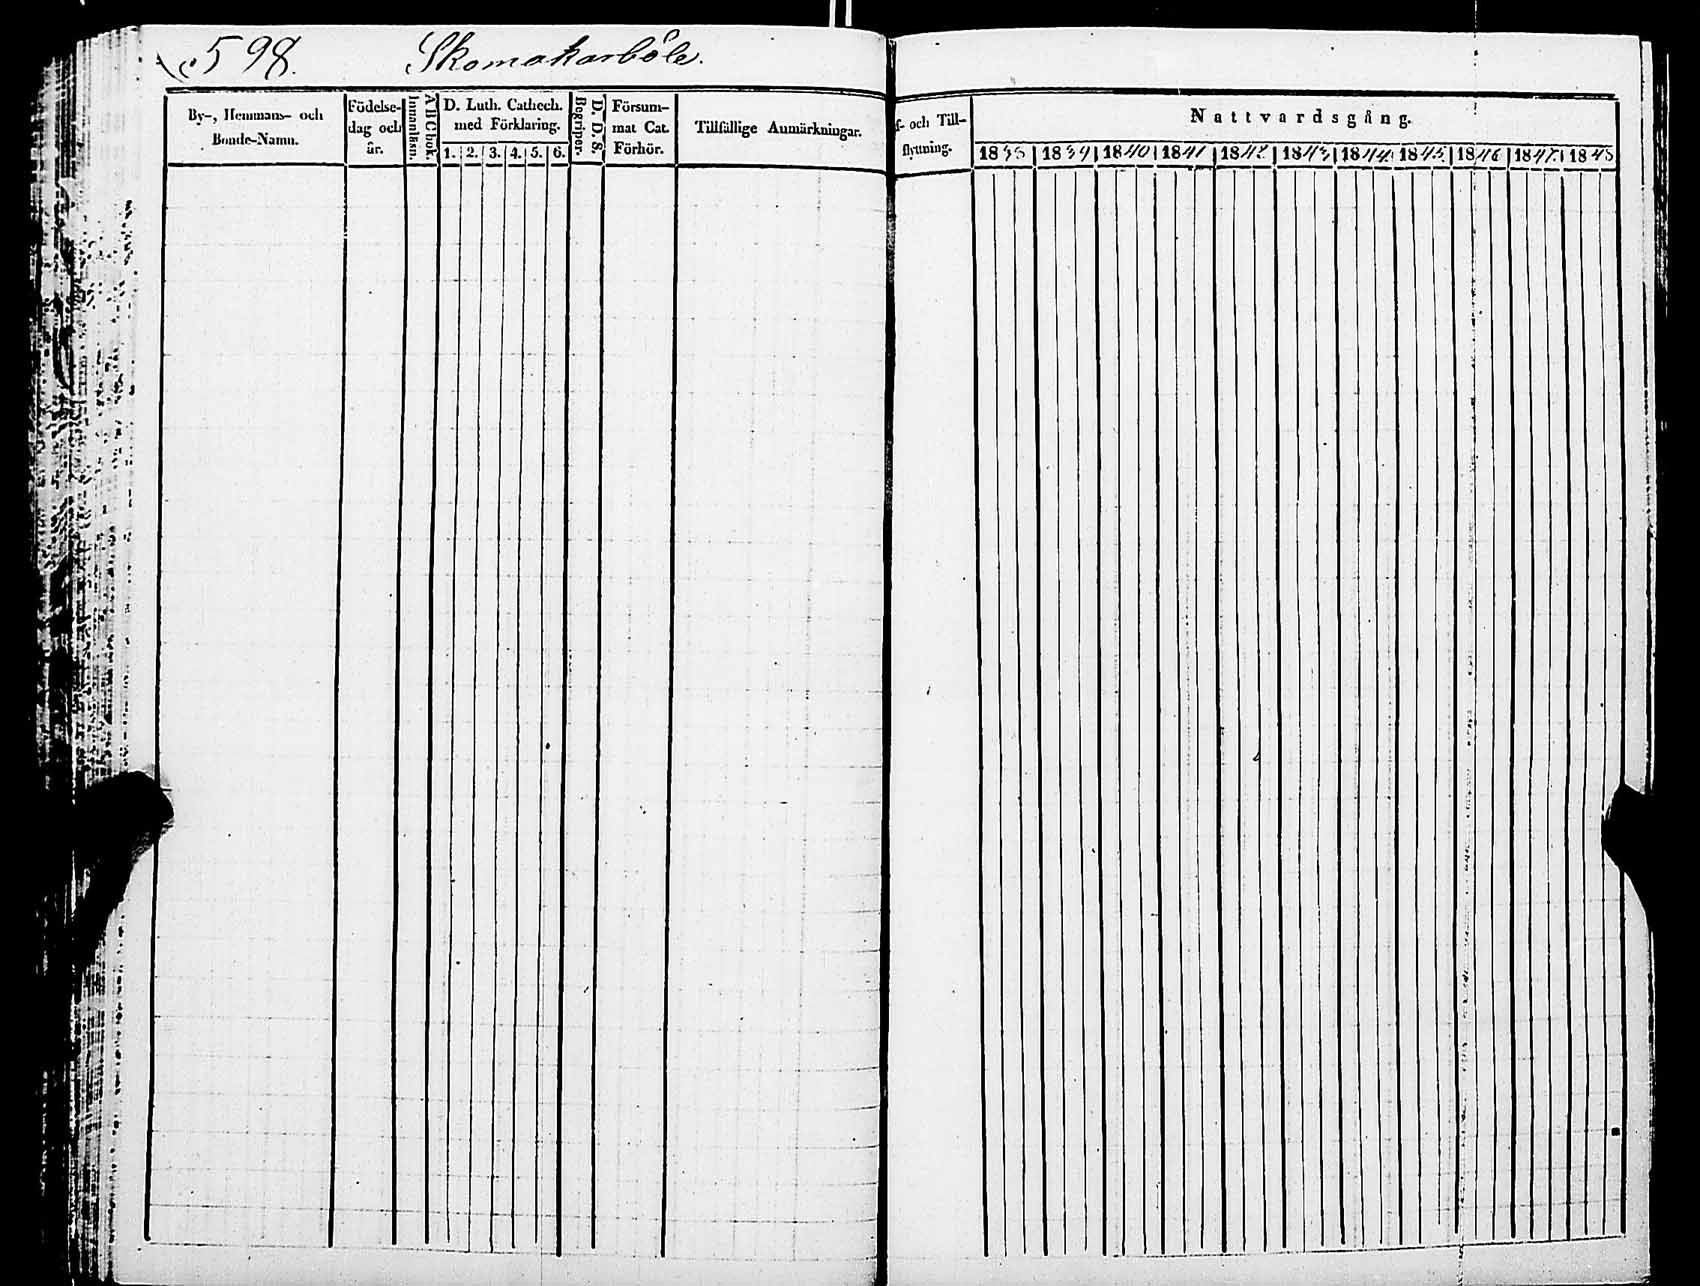 598. Skomakarböle.
By-, Hemmans- och
Bonde-Namn.
Födelse-
dag och
år.
A B C bok.
Innanläsn.
D. Luth. Cathech.
med Förklaring.
1. 2. 3. 4. 5. 6.
D. D. S.
Begriper.
Försum-
mat Cat.
Förhör.
Tillfällige Anmärkningar.
f- och Till-
flyttning.
Nattvardsgång.
1838 1839 1840 1841 1842. 1843. 1844. 1845. 1846 1847. 1848